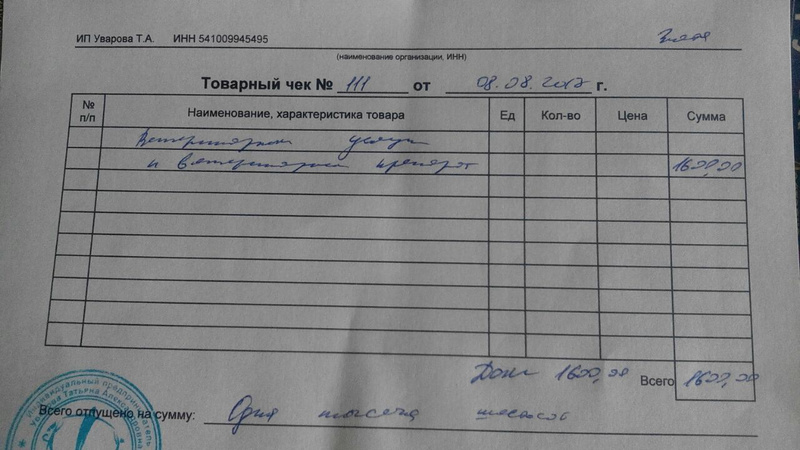 ИП Уварова Т.А. ИНН 541009945495
(наименование организации, ИНН)
Товарный чек № 111 от 08.08.2017 г.
№ п/п Наименование, характеристика товара Ед Кол-во Цена Сумма
Ветеринарные услуги
и ветеринарный препарат 1600,00
Долг 1600,00 Всего 1600,00
Всего отпущено на сумму: Одна тысяча шестьсот
Индивидуальный предприниматель
Уварова Татьяна Александровна